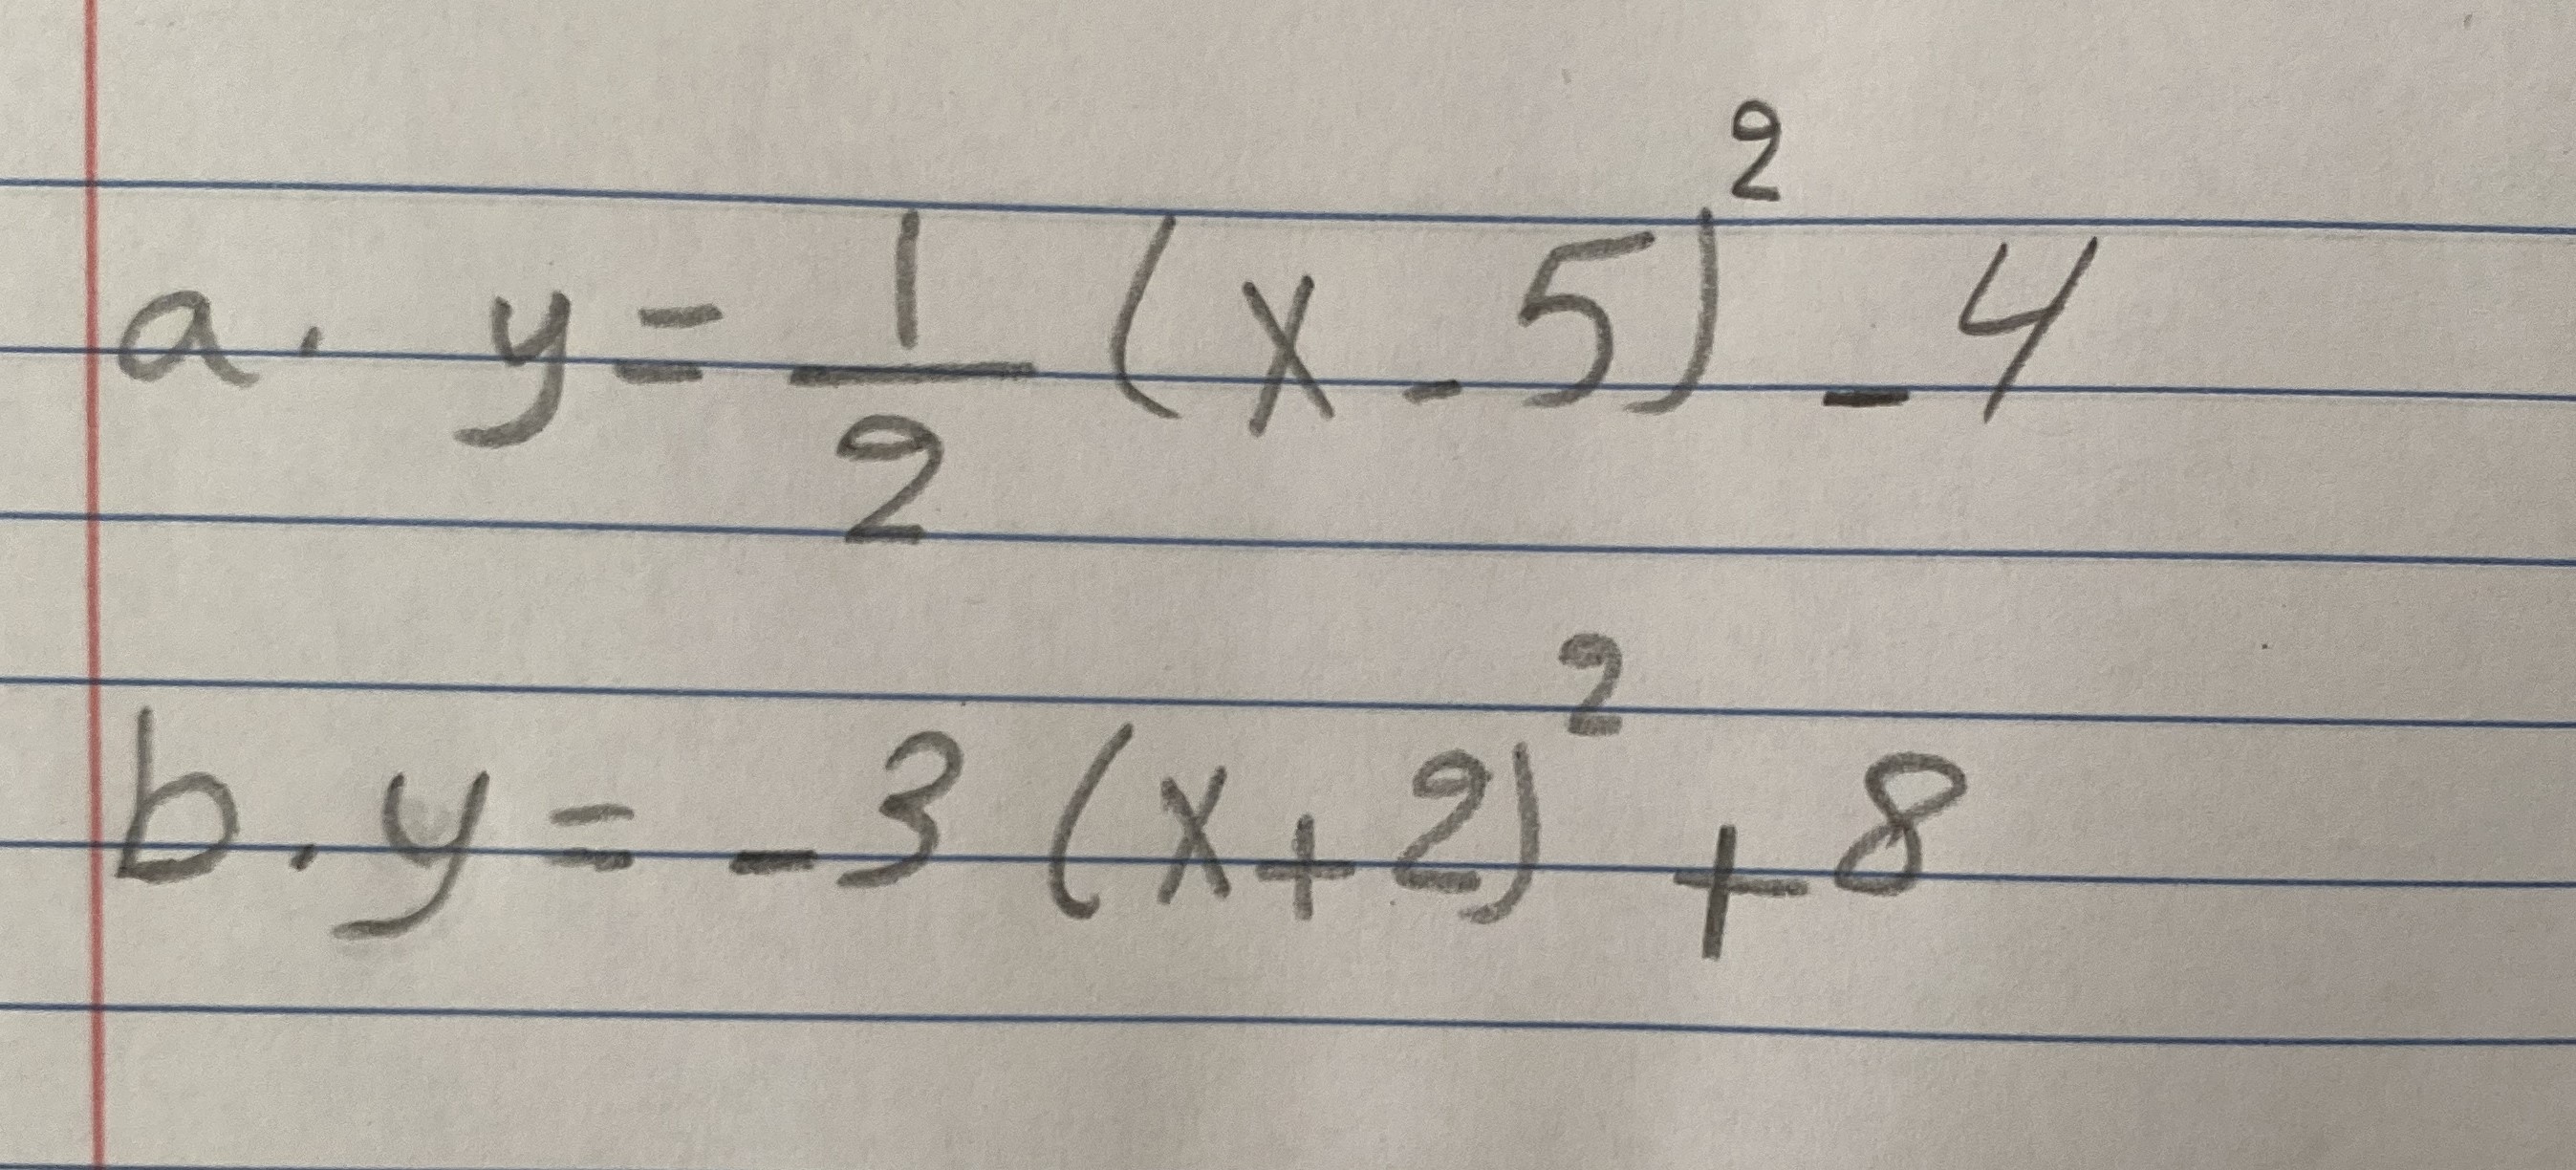 a. y = 1/2 (x - 5)² - 4
b. y = -3 (x + 2)² + 8